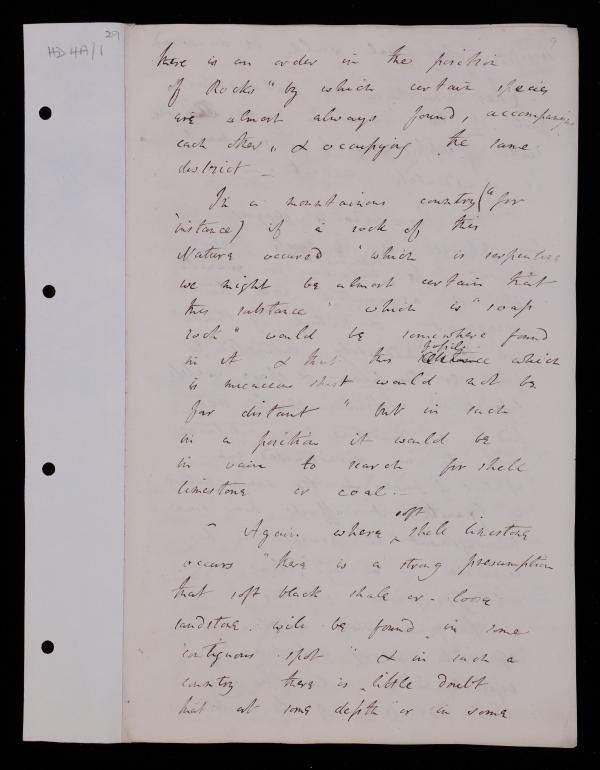 29
HD 4A/1
9
there is an order in the position
of Rocks " by which certain species
are almost always found, accompanying
each other, & occupying the same
district –
In a mountainous country (" for
instance) if a rock of this
Nature occured " which is serpentine
we might be almost certain that
this substance " which is " soap
rock " would be somewhere found
in it & that this fossile which
is micaceous shist would not be
far distant " but in such
in a position it would be
in vain to search for shell
limestone or coal. –
– Again where soft shell limestone
occurs " there is a strong presumption
that soft black shale or loose
sandstone will be found in some
contiguous spot " & in such a
country there is little doubt
that at some depth or in some